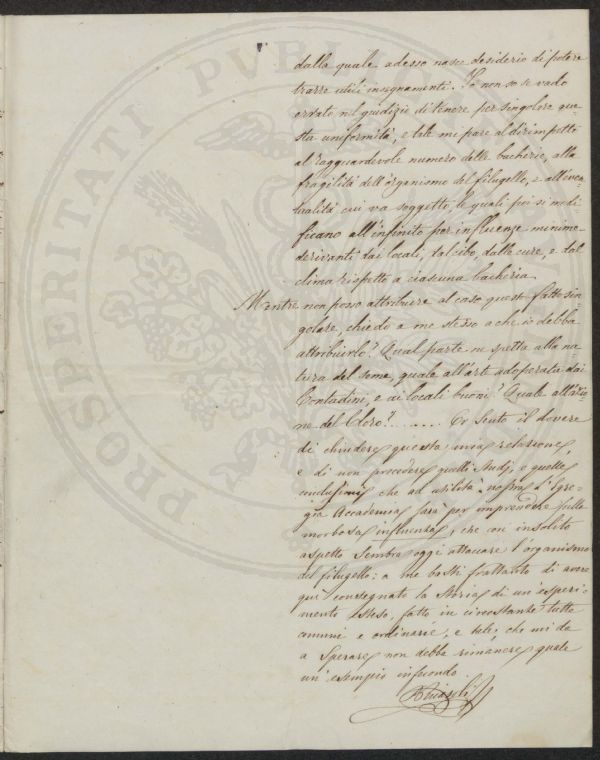 dalla quale adesso nasce desiderio di potere
trarre utili insegnamenti. Io non so se vado
errato nel giudizio di tenere per singolare que-
sta uniformità, e tale mi pare al dirimpetto
al ragguardevole numero delle bacherie, alla
fragilità dell'organismo del filugello, e all'even-
tualità cui va soggetto, le quali poi si modi-
ficano all'infinito per influenze minime
derivanti dai locali, dal cibo, dalle cure, e dal
clima rispetto a ciascuna bacheria.
Mentre non posso attribuire al caso questo fatto sin-
golare, chiedo a me stesso a che io debba
attribuirlo? Qual parte ne spetta alla na-
tura del seme, quale all'arte adoperata dai
Contadini, e ai locali buoni? Quale all'azio-
ne del Cloro? ...... Or sento il dovere
di chiudere questa mia relazione,
e di non precedere quelli studj, e quelle
conclusioni che ad utilità nostra l'Egre-
gia Accademia sarà per imprendere sulla
morbosa influenza, che con insolito
aspetto sembra oggi attaccare l'organismo
del filugello: a me basti frattanto di avere
qui consegnato la storia di un'esperi-
mento esteso, fatto in circostanze tutte
comuni e ordinarie, e tale, che mi da
a sperare non debba rimanere quale
un'esempio infecondo.
PROSPERITATI PUBLICAE